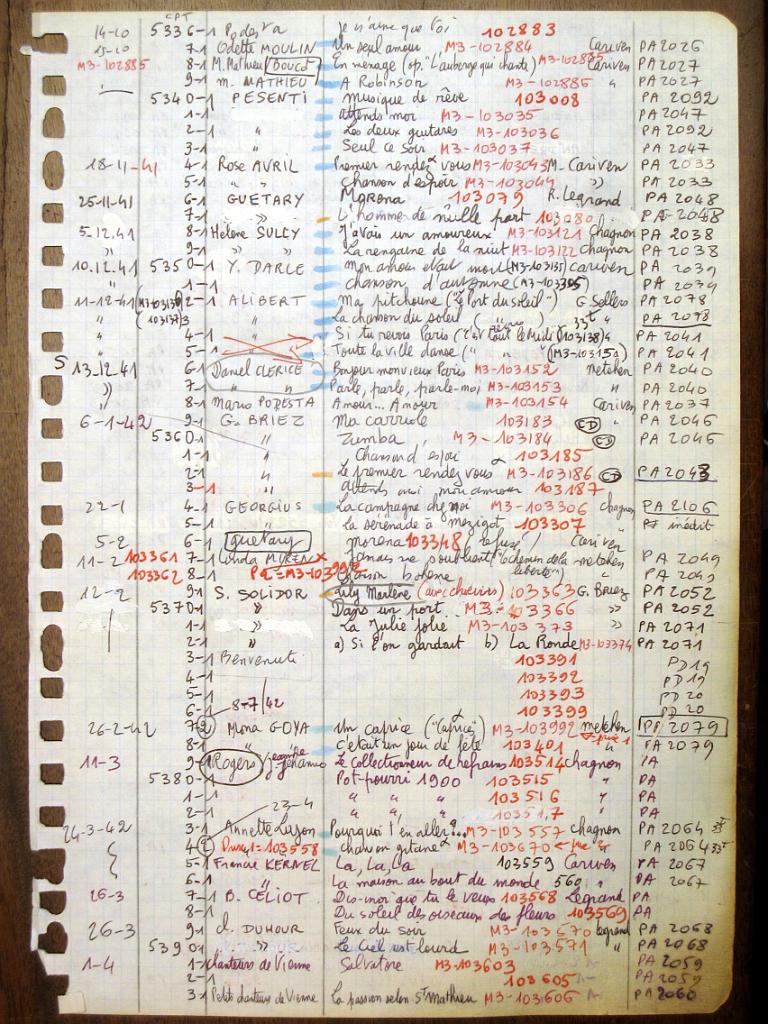 CPT
14-10 5336-1 Podesta Je n'aime que toi 102883
15-10 7-1 Odette MOULIN Un seul amour M3-102884 Cariven PA2026
M3-102885 8-1 M. Mathieu DOUCE En ménage (op. "L'auberge qui chante) M3-102885 Cariven PA2027
9-1 M. MATHIEU A Robinson M3-102886 " PA2027
5340-1 PESENTI Musique de rêve 103008 PA 2092
1-1 " Attends moi M3-103035 PA2047
2-1 " Les deux guitares M3-103036 PA2092
3-1 " Seul ce soir M3-103037 PA 2047
18-11-41 4-1 Rose AVRIL Premier rendez vous M3-103043 M. Cariven PA 2033
5-1 " " chanson d'espoir M3-103044 " PA 2033
25-11-41 6-1 GUETARY Morena 103079 R. Legrand PA 2048
7-1 " L'homme de nulle part 103080 PA 2048
5.12.41 8-1 Hélène SULLY J'avais un amoureux M3-103121 Chagnon PA 2038
" 9-1 " " La rengaine de la nuit M3-103122 Chagnon PA 2038
10.12.41 5350-1 Y. DARLE Mon amour était mort (M3-103135) Cariven PA 2039
" 1-1 " chanson d'automne PA 2039
11-12-41 (M3103136) 2-1 ALIBERT Ma pitchoune ("Le Port du soleil") G. Sellers PA 2078
" (103137) 3 " La chanson du soleil PA 2078
" 4-1 " Si tu revois Paris 103138 " PA2041
5-1 " Toute la ville danse (" " (M3-103152) PA2041
S 13-12-41 6-1 Daniel CLERICE Bonjour mon vieux Paris M3-103152 Metehen PA 2040
" 7-1 " " Parle, parle, parle-moi M3-103153 " PA 2040
8-1 Mario PODESTA Amour... Amour M3-103154 Cariven PA 2037
6-1-42 9-1 G. BRIEZ Ma carriole 103183 CD PA2046
5360-1 " Zumba M3-103184 CD PA2046
1-1 " Chanson d'espoir 103185
2-1 " Le premier rendez vous M3-103186 CD PA2043
3-1 " Attends moi mon amour 103187
22-1 4-1 GEORGIUS La campagne chez moi M3-103306 chagnon PA 2106
5-1 " la sérénade à mézigot 103307 inédit
5-2 6-1 guetary morena 103348 refusé Cariven
11-2 103361 7-1 Jamais ne soublient ("chemin de la liberté") metehen PA 2049
103362 8-1 Pa = M3-103992 Chanson bohème " PA 2049
12-2 9-1 S. SOLIDOR Lily Marlène (avec choeurs) 103363 G. Briez PA2052
5370-1 " Dans un port.. M3-103366 " PA 2052
1-1 " La Julie jolie.. M3-103373 " PA 2071
2-1 " a) Si l'on gardait b) La Ronde M3-103374 PA 2071
3-1 Benvenuti 103391 PD19
4-1 103392 PD 19
5-1 103393 PD 20
6-1 8-7/42 103399 PD 20
26-2-42 7-2 Mona GOYA Un caprice ("Caprices") M3-103992 metehen PA 2079
8-1 " c'était un jour de fête 103401 " PA 2079
11-3 9-1 Rogers Jeanne Johanno Le collectionneur de refrains 103514 chagnon PA
5380-1 Pot-pourri 1900 103515 " PA
1-1 " " " 103516 " PA
2-1 23-4 " " " 103517 " PA
24-3-42 3-1 Annette Lajon Pourquoi t'en aller?.. M3-103557 chagnon PA 2064
4-2 Prise 1 = 103558 chanson gitane M3-103670 ← prise 2 PA 2064
5-1 Francie KERNEL La, La, La 103559 Cariven PA 2067
6-1 " La maison au bout du monde 560 " PA 2067
26-3 7-1 B. CELIOT Dis-moi que tu le veux 103568 Legrand PA
8-1 " Du soleil des oiseaux des fleurs 103569 PA
26-3 9-1 C. DUHOUR Feux du soir M3-103570 legrand PA 2068
5390-1 " Le ciel est lourd M3-103571 " PA 2068
1-4 1-1 chanteurs de Vienne Salvatore M3-103603 PA 2059
2-1 103605 PA 2059
3-1 Petits chanteurs de Vienne La passion selon St mathieu M3-103606 PA 2060